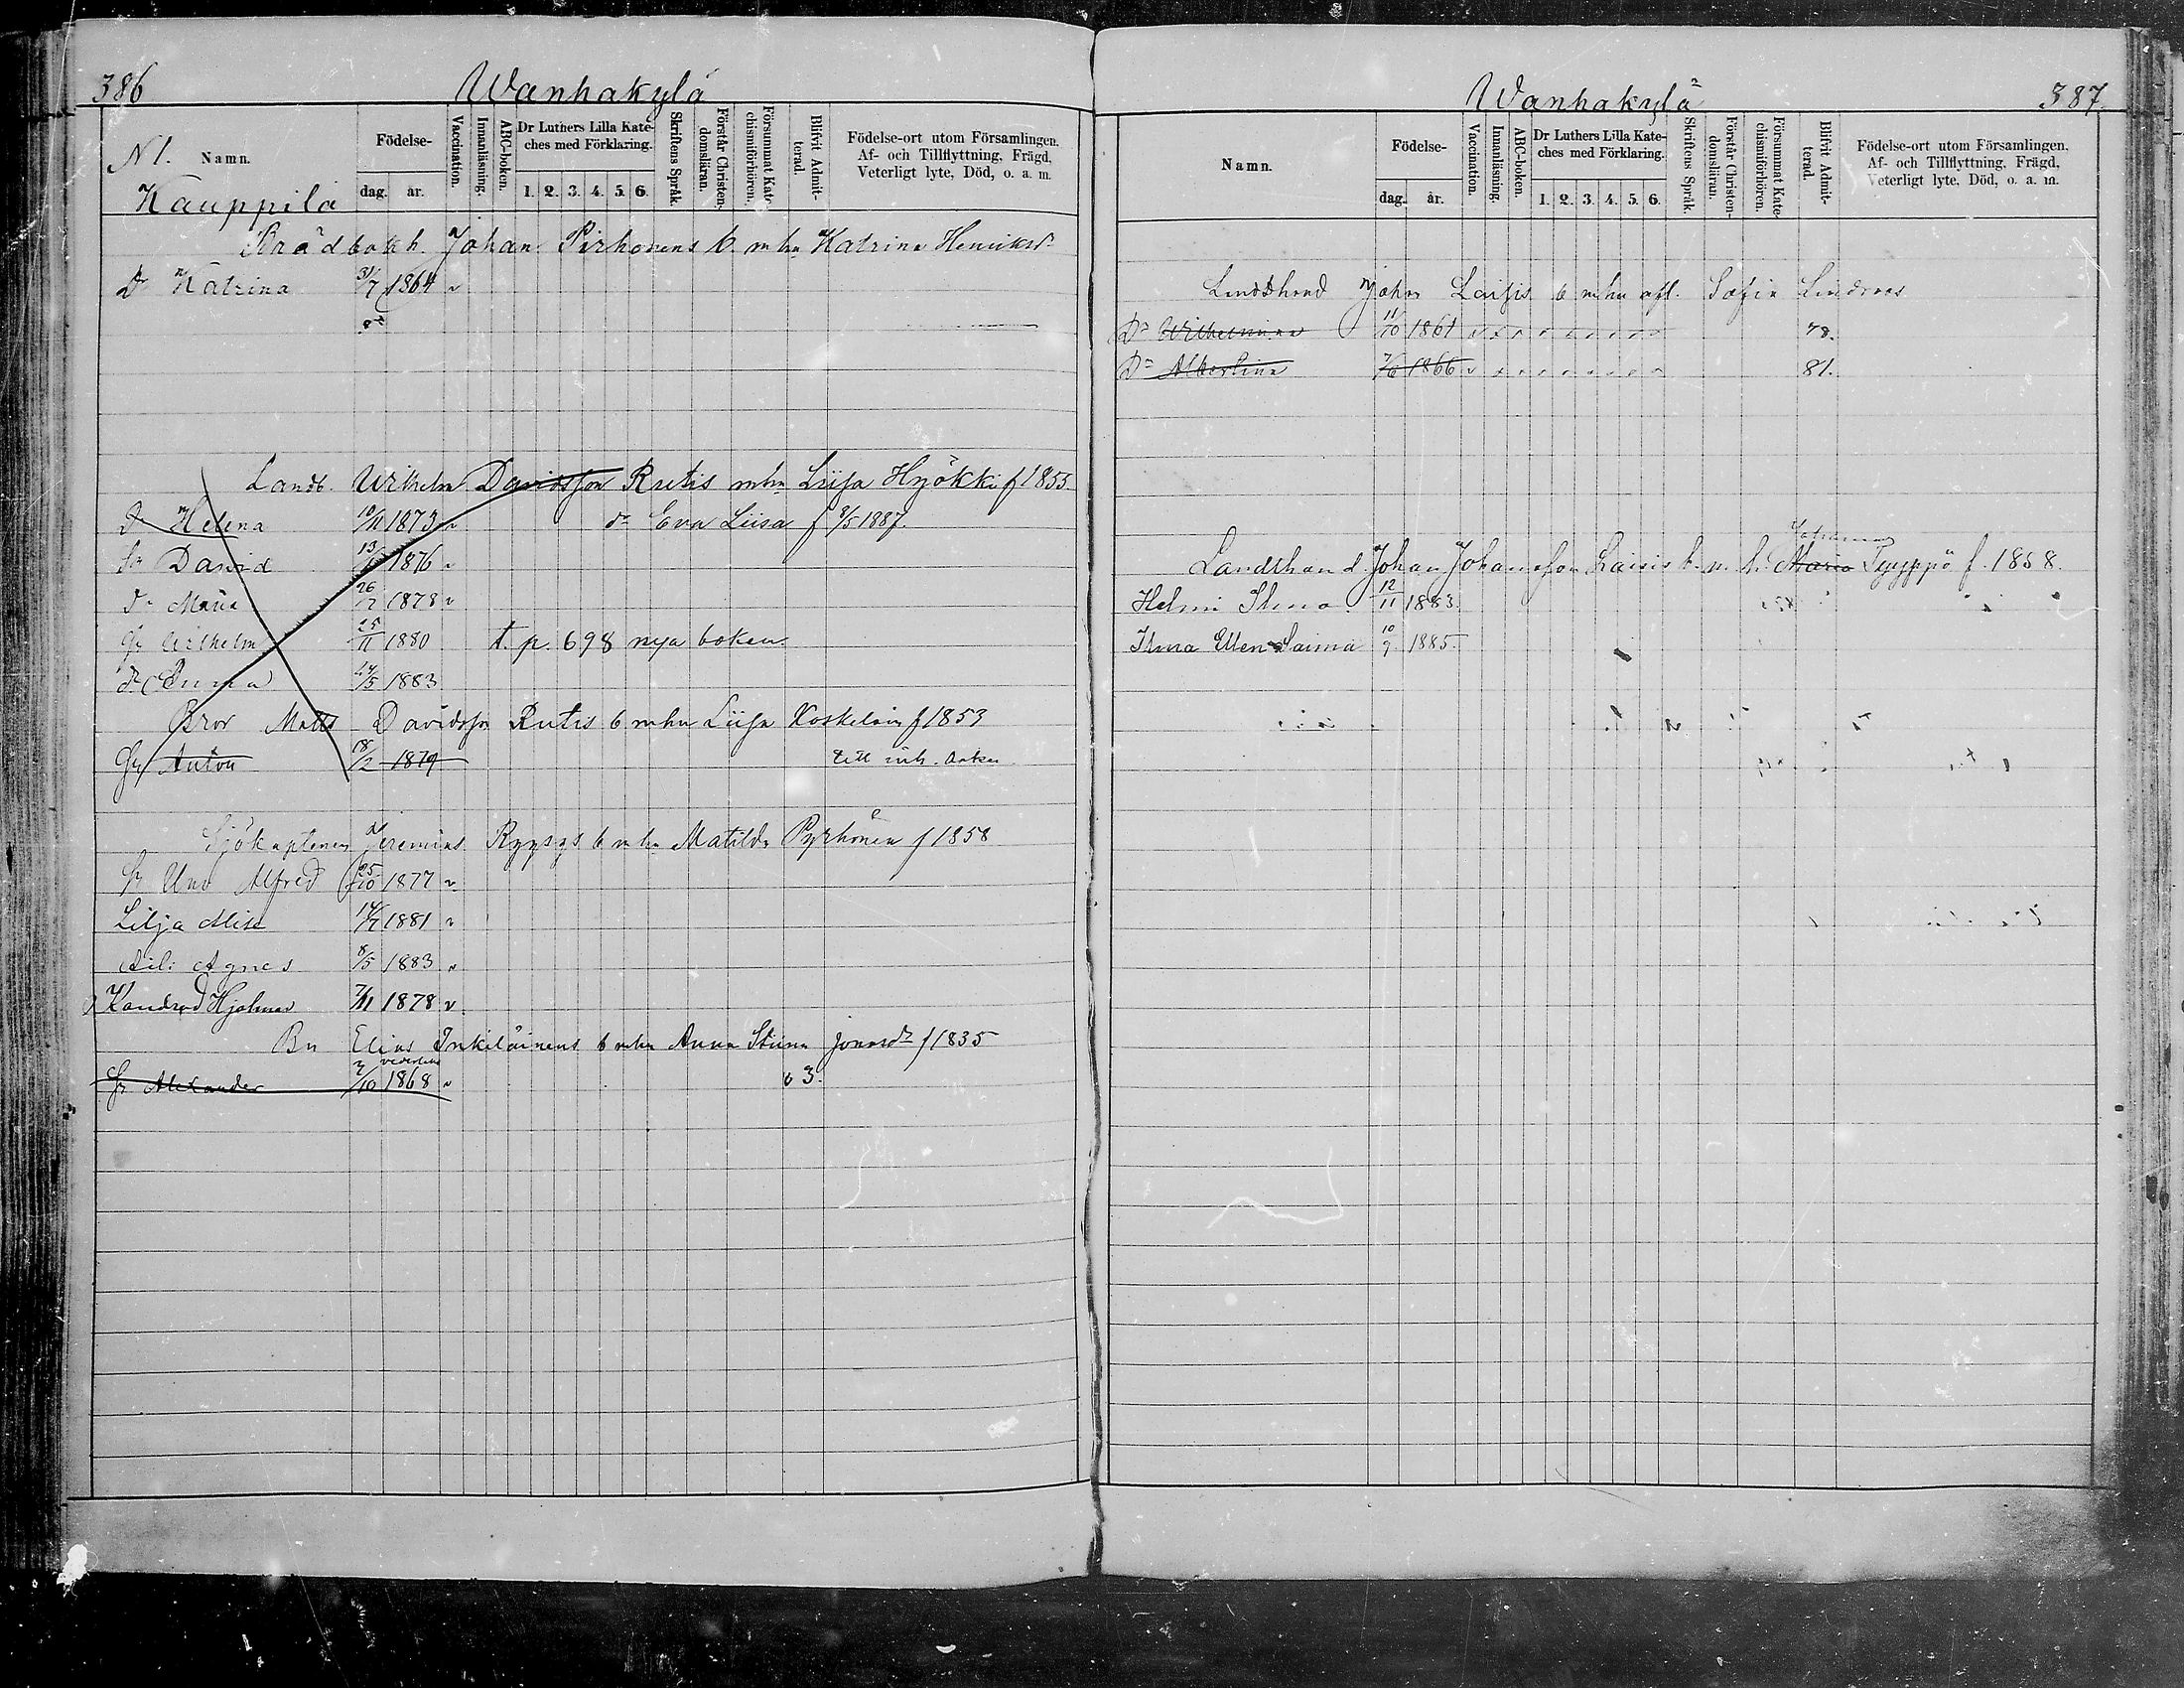 386
Wanhakylä
N1.
Namn.
Födelse-
dag. år.
Vaccination.
Innanläsning.
ABC-boken.
Dr Luthers Lilla Kate-
ches med Förklaring.
1. 2. 3. 4. 5. 6.
Skriftens Språk.
Förstår Christen-
domsläran.
Försummat Kate-
chismiförhören.
Blifvit Admit-
terad.
Födelse-ort utom Församlingen.
Af- och Tillflyttning, Frägd,
Veterligt lyte, Död, o. a. m.
Kauppila
Johan Pirhonens b. m hu Katrina Henriksd
Dr Katrina 31/7 1864 v
Landb. Wilhelm Davidsson Rutis m hu Liisa Hyökki f 1853.
dr Helena 10/11 1873 v dr Eva Liisa f 8/5 1887.
Sn David 1876 v
dr Maria 1878 v
Wilhelm 25/11 1880 t. p. 698 nya boken.
dr Emma 1883
Bror Matts Davidsson Rutis b m hu Liisa f 1853
Anton 18/2 1879 till
Sjökaptenen Jeremias b m hu Matilda Pyrhönen f 1858
Uno Alfred 25/10 1877 v
Lilja 1881 v
Aili Agnes 8/5 1883 v
Hjalmar 7/11 1878 v
Bn Elias Inkiläinens b m hu Anna Stiina f 1835
Alexander 1868 v
Wanhakylä
387
Namn.
Födelse-
dag. år.
Vaccination.
Innanläsning.
ABC-boken.
Dr Luthers Lilla Kate-
ches med Förklaring.
1. 2. 3. 4. 5. 6.
Skriftens Språk.
Förstår Christen-
domsläran.
Försummat Kate-
chismiförhören.
Blifvit Admit-
terad.
Födelse-ort utom Församlingen.
Af- och Tillflyttning, Frägd,
Veterligt lyte, Död, o. a. m.
Johan b m hu Sofia Lindroos
Dr Wilhelmina 11/10 1861 78.
Dr Albertina 7/6 1866 81.
Landthand. Johan Johansson Laisis b. m. h. Maria f. 1858.
Helmi 12/11 1883.
Ellen Saima 10/9 1885.